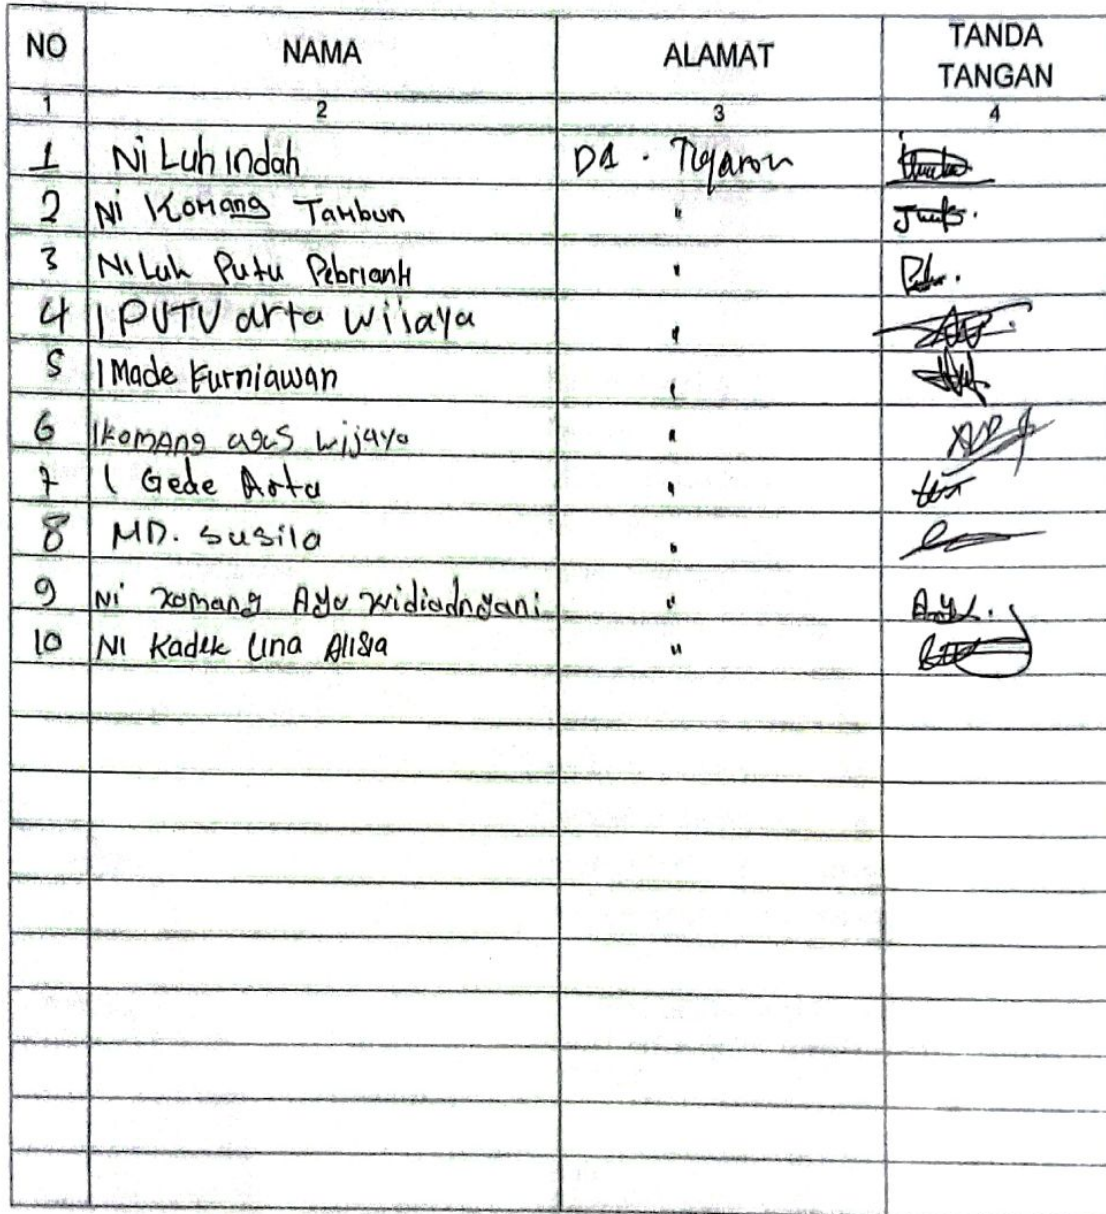 NO NAMA ALAMAT TANDA TANGAN
1 2 3 4
1 Ni Luh Indah DA . Tigaron
2 Ni Komang Tambun "
3 Ni Luh Putu Pebrianti "
4 I PUTU arta wijaya "
5 I Made Kurniawan "
6 I komang agus wijaya "
7 I Gede Arta "
8 MD. Susila "
9 Ni Komang Ayu Widiadnyani "
10 Ni Kadek Lina Alisia "